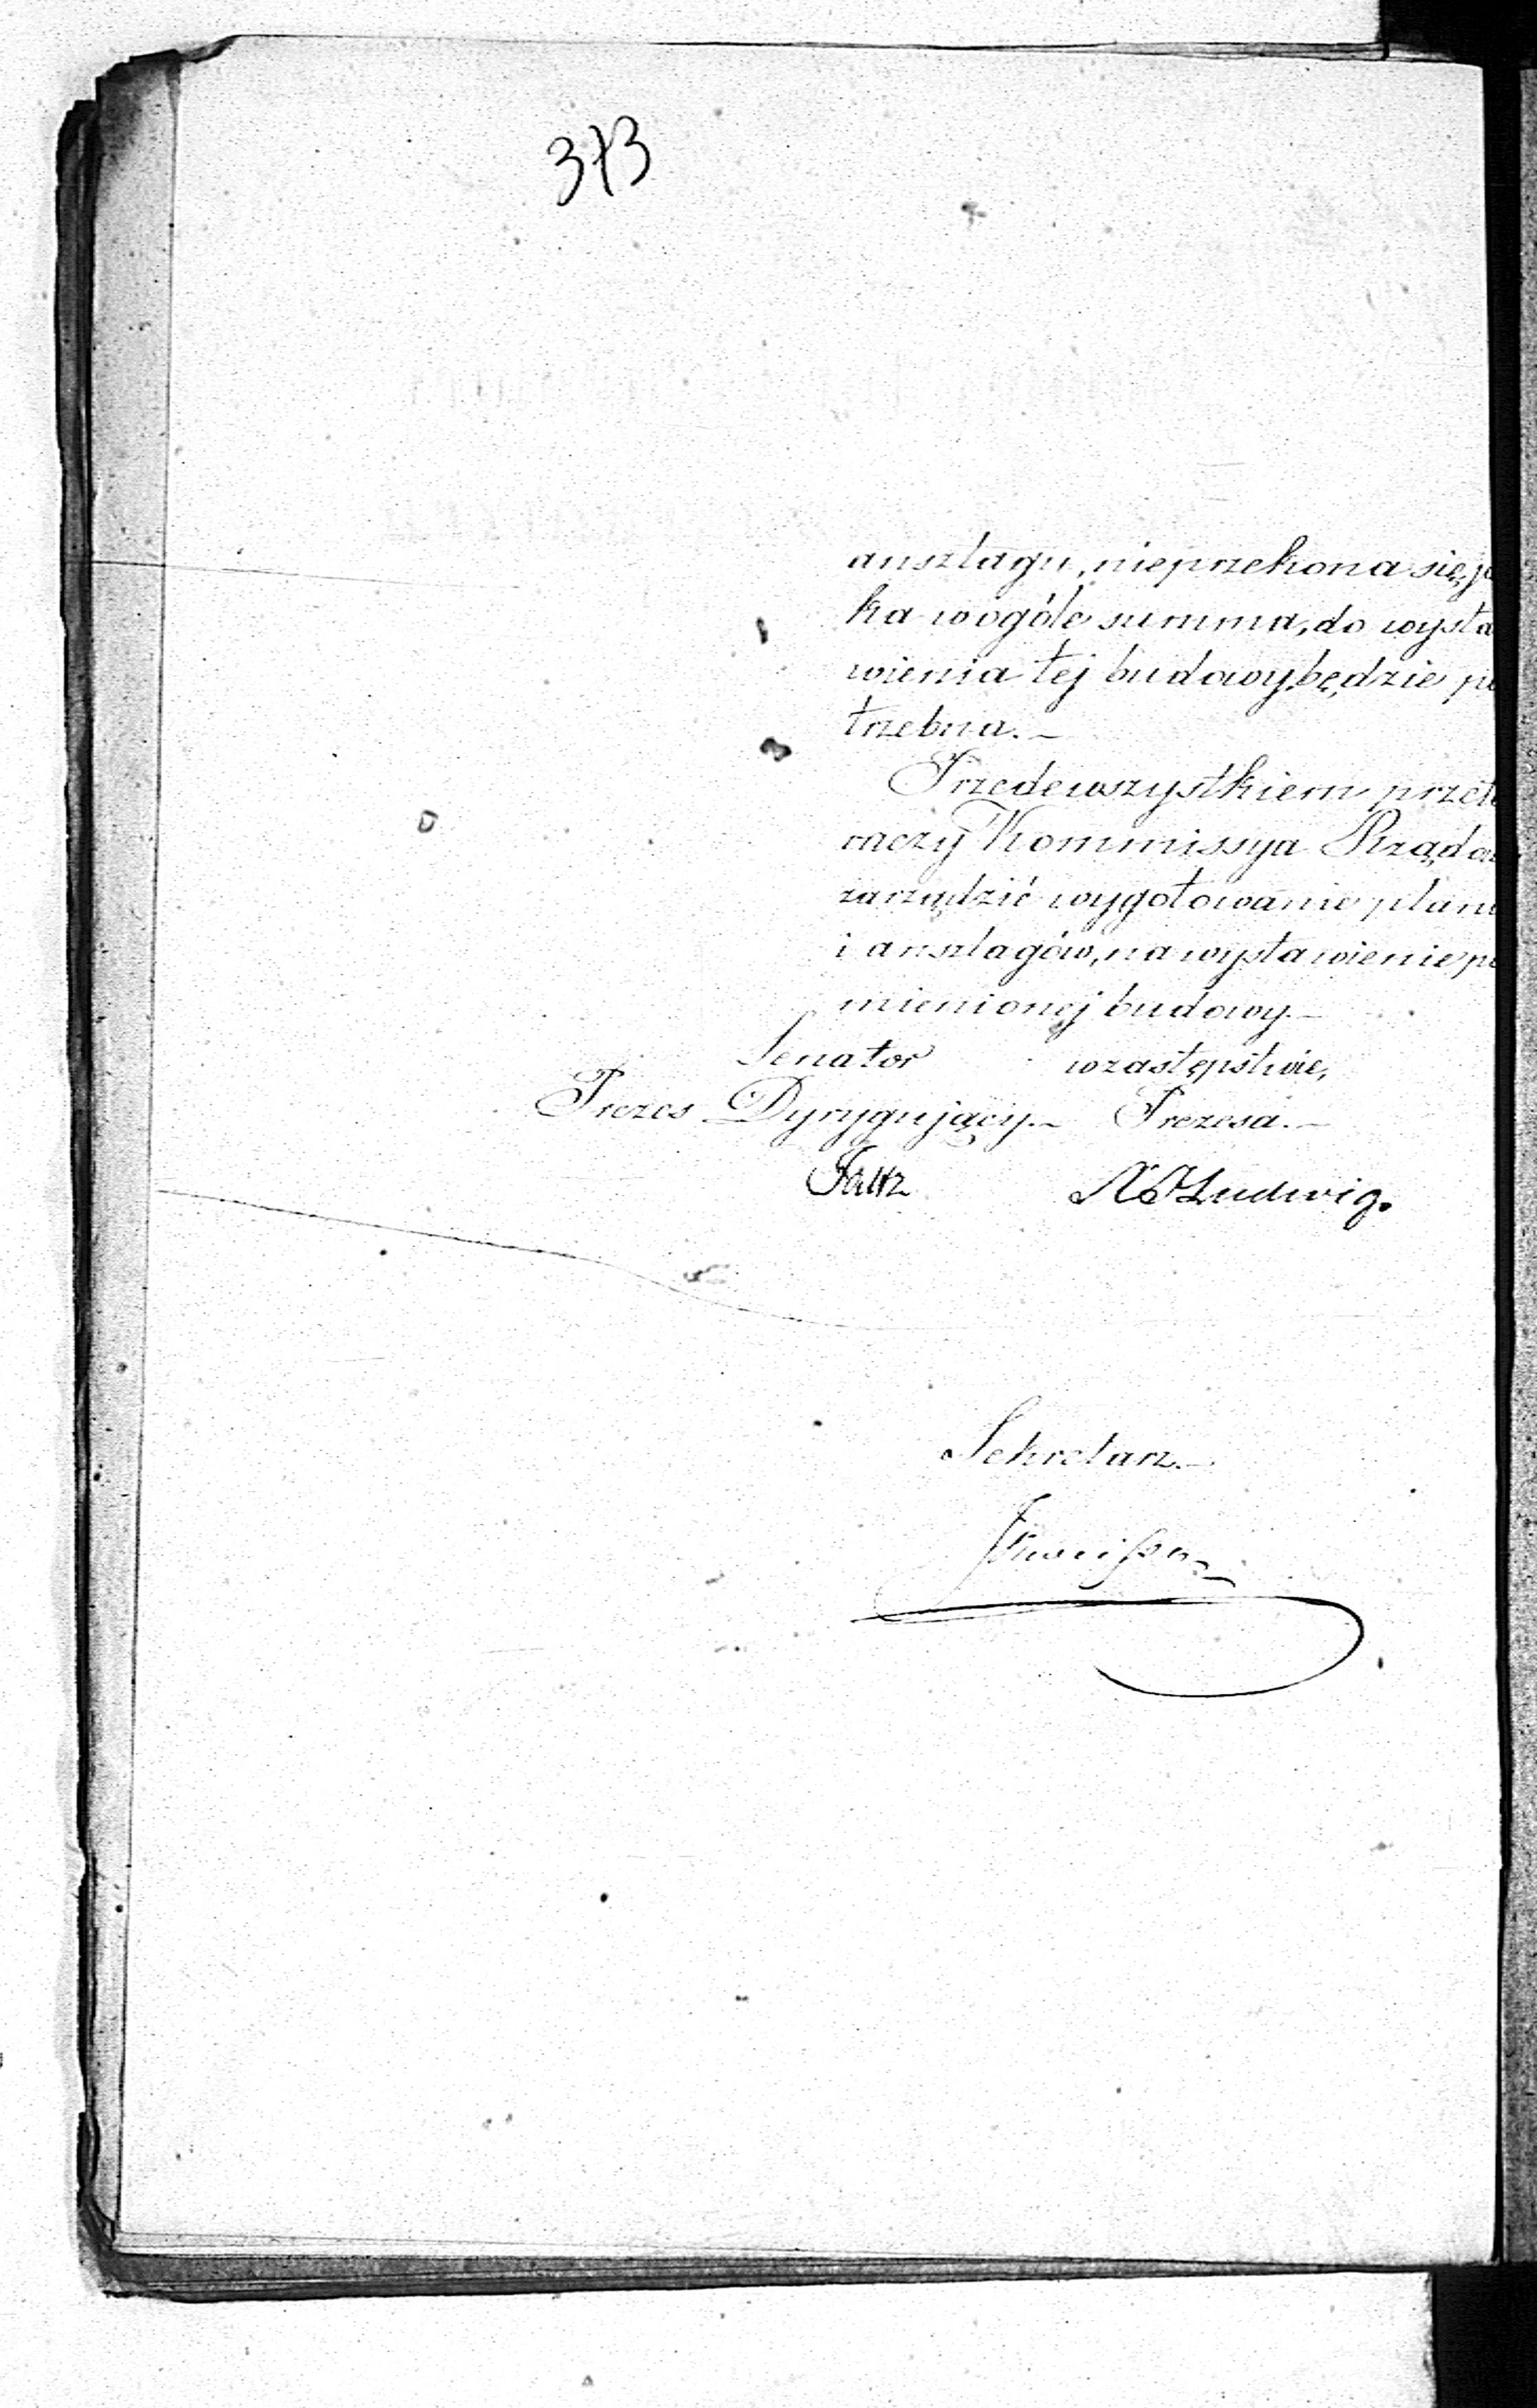 373
anszlagu, nieprzekona się, ja
ka wogóle summa, do wysta
wienia tej budowy, będzie po
trzebna. –
Przedewszystkiem przeto
raczy Kommissya Rządo
zarządzić wygotowanie planu
i anszlagów, na wystawienie po
mienionej budowy. –
Senator w zastępstwie,
Prezes Dyrygujący. – Prezesa. –
Ludwig.
Sekretarz. –